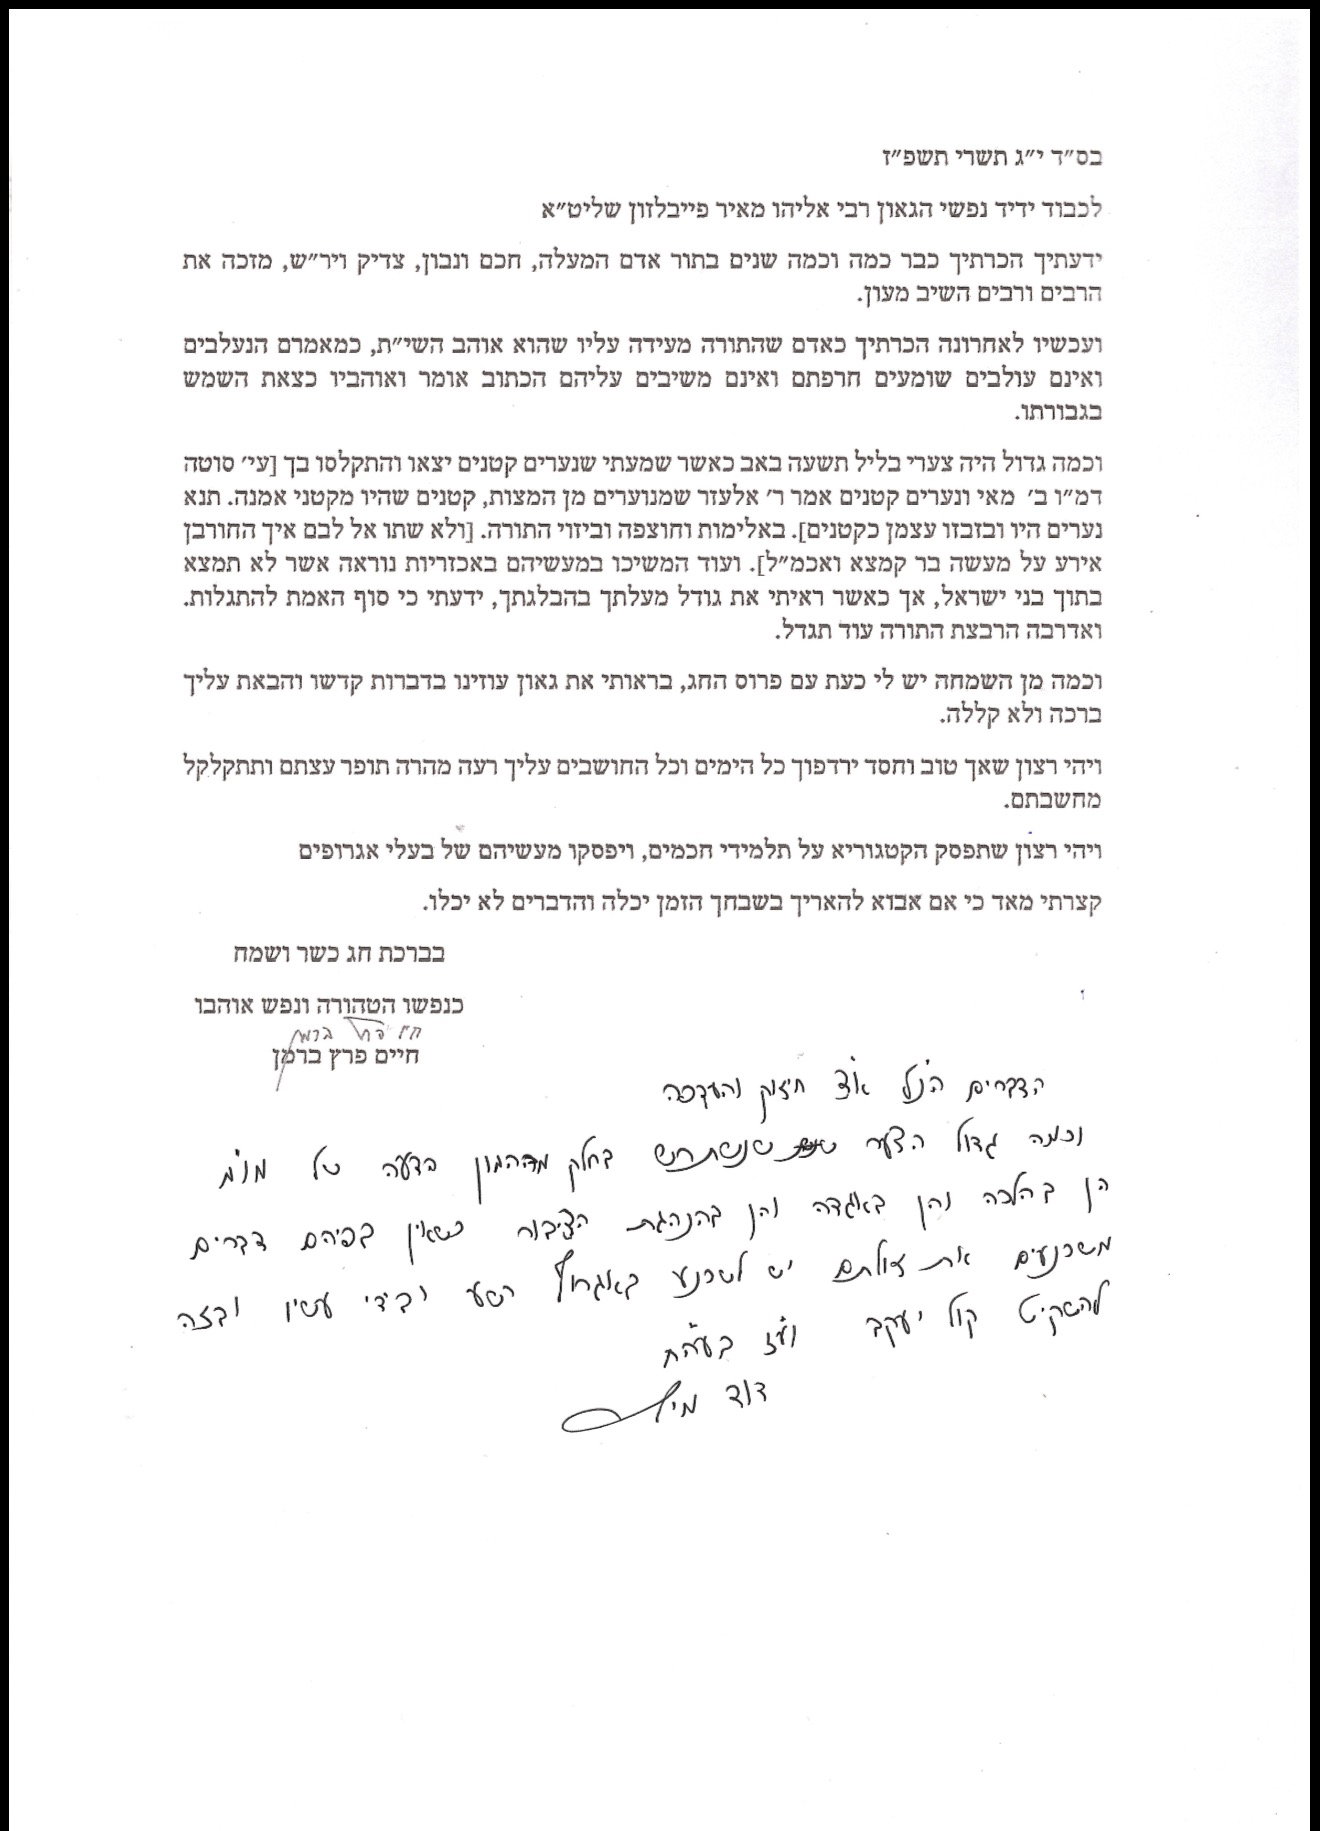 בס״ד י״ג תשרי תשפ״ז
לכבוד ידיד נפשי הגאון רבי אליהו מאיר פייבלזון שליט״א
ידעתיך הכרתיך כבר כמה וכמה שנים בתור אדם המעלה, חכם ונבון, צדיק ויר״ש, מזכה את
הרבים ורבים השיב מעון.
ועכשיו לאחרונה הכרתיך כאדם שהתורה מעידה עליו שהוא אוהב השי״ת, כמאמרם הנעלבים
ואינם עולבים שומעים חרפתם ואינם משיבים עליהם הכתוב אומר ואוהביו כצאת השמש
בגבורתו.
וכמה גדול היה צערי בליל תשעה באב כאשר שמעתי שנערים קטנים יצאו והתקלסו בך [עי׳ סוטה
דמ״ו ב׳ מאי ונערים קטנים אמר ר׳ אלעזר שמנוערים מן המצות, קטנים שהיו מקטני אמנה. תנא
נערים היו ובזבזו עצמן כקטנים]. באלימות וחוצפה וביזוי התורה. [ולא שתו אל לבם איך החורבן
אירע על מעשה בר קמצא ואכמ״ל]. ועוד המשיכו במעשיהם באכזריות נוראה אשר לא תמצא
בתוך בני ישראל, אך כאשר ראיתי את גודל מעלתך בהבלגתך, ידעתי כי סוף האמת להתגלות.
ואדרבה הרבצת התורה עוד תגדל.
וכמה מן השמחה יש לי כעת עם פרוס החג, בראותי את גאון עוזינו בדברות קדשו והבאת עליך
ברכה ולא קללה.
ויהי רצון שאך טוב וחסד ירדפוך כל הימים וכל החושבים עליך רעה מהרה תופר עצתם ותתקלקל
מחשבתם.
ויהי רצון שתפסק הקטגוריא על תלמידי חכמים, ויפסקו מעשיהם של בעלי אגרופים
קצרתי מאד כי אם אבוא להאריך בשבחך הזמן יכלה והדברים לא יכלו.
בברכת חג כשר ושמח
כנפשו הטהורה ונפש אוהבו
חיים פרץ ברמן
חיים פרץ ברמן
הדברים הנ״ל א״צ חיזוק והערכה
וכמה גדול הצער שנשתרש בחלק מההמון הדעה של
הן בהלכה והן באגדה והן בהנהגת הציבור כשאין בפיהם דברים
משכנעים את זולתם יש לשכנע באגרוף רשע ובידי עשיו ובזה
להשקיט קול יעקב וע״ז בעה״ח
דוד